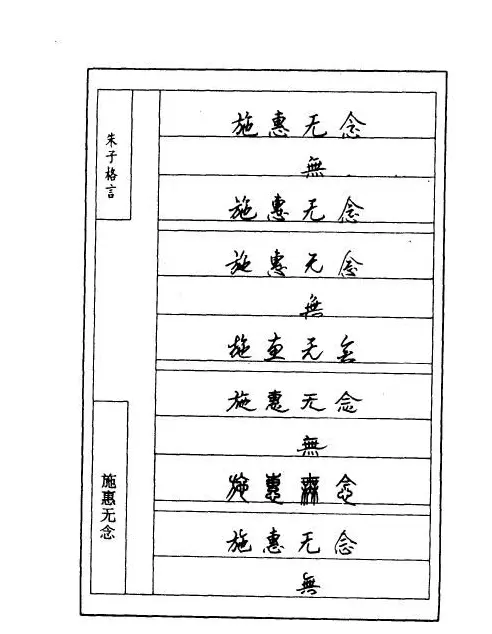 朱子格言
施惠无念
無
施惠无念
施惠无念
無
施惠无念
施惠无念
無
施惠無念
施惠无念
無
施惠无念